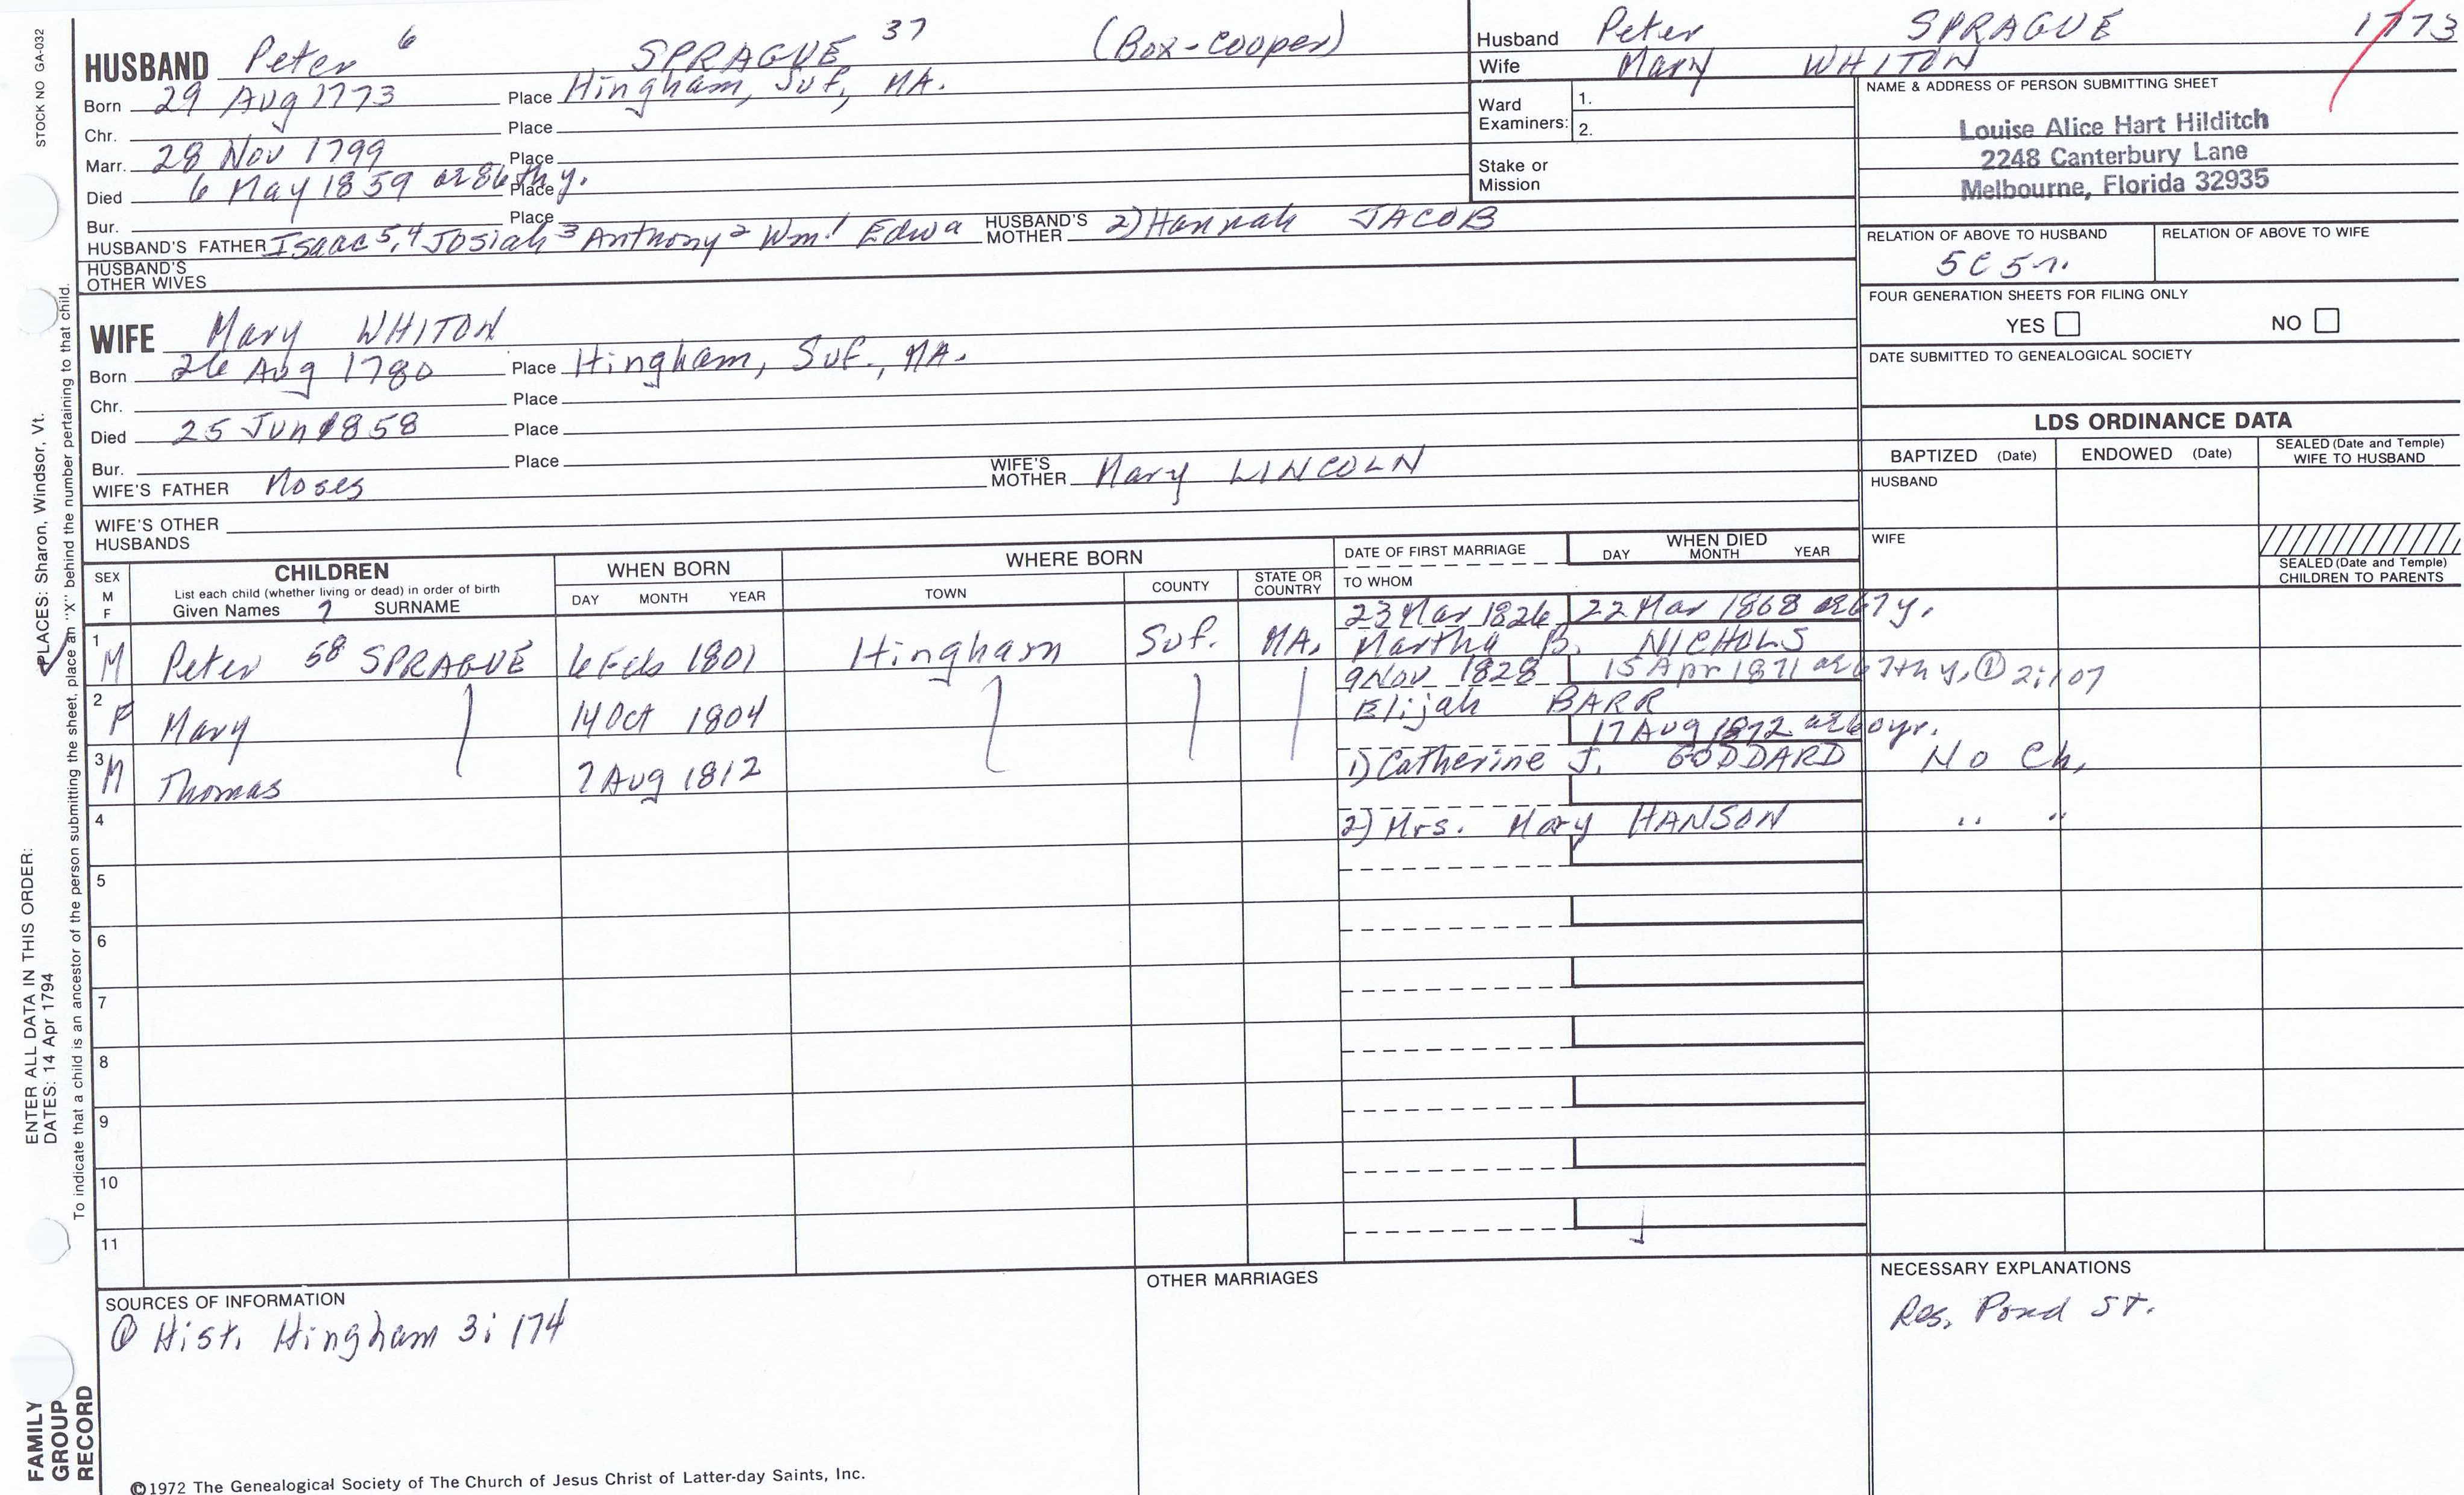 STOCK NO GA-032
HUSBAND Peter 6 SPRAGUE 37 (Box-cooper)
Born 29 Aug 1773 Place Hingham, Suf, MA.
Chr. Place
Marr. 28 Nov 1799 Place
Died 6 May 1859 ae 86th y. Place
Bur. Place
HUSBAND'S FATHER Isaac 5,4 Josiah 3 Anthony 2 Wm. 1 Edwa HUSBAND'S MOTHER 2) Hannah JACOB
HUSBAND'S OTHER WIVES
WIFE Mary WHITON
Born 26 Aug 1780 Place Hingham, Suf., MA.
Chr. Place
Died 25 Jun 1858 Place
Bur. Place
WIFE'S FATHER Moses WIFE'S MOTHER Mary LINCOLN
WIFE'S OTHER HUSBANDS
Husband Peter SPRAGUE 1773
Wife Mary WHITON
Ward Examiners: 1.
2.
Stake or Mission
NAME & ADDRESS OF PERSON SUBMITTING SHEET
Louise Alice Hart Hilditch
2248 Canterbury Lane
Melbourne, Florida 32935
RELATION OF ABOVE TO HUSBAND RELATION OF ABOVE TO WIFE
5C 5r.
FOUR GENERATION SHEETS FOR FILING ONLY
YES NO
DATE SUBMITTED TO GENEALOGICAL SOCIETY
LDS ORDINANCE DATA
BAPTIZED (Date) ENDOWED (Date) SEALED (Date and Temple) WIFE TO HUSBAND
HUSBAND
WIFE
SEALED (Date and Temple) CHILDREN TO PARENTS
SEX M F
CHILDREN
List each child (whether living or dead) in order of birth
Given Names 7 SURNAME
WHEN BORN
DAY MONTH YEAR
WHERE BORN
TOWN COUNTY STATE OR COUNTRY
DATE OF FIRST MARRIAGE
TO WHOM
WHEN DIED
DAY MONTH YEAR
23 Mar 1826 22 Mar 1868 ae 67 y.
1 M Peter 58 SPRAGUE 6 Feb 1801 Hingham Suf. MA. Martha B. NICHOLS
9 Nov 1828 15 Apr 1871 ae 67th y. ① 2:107
2 F Mary 14 Oct 1804 Elijah BARR
17 Aug 1872 ae 60 yr.
3 M Thomas 7 Aug 1812 1) Catherine J. GODDARD No Ch.
4 2) Mrs. Mary HANSON " "
5
6
7
8
9
10
11
SOURCES OF INFORMATION
① Hist. Hingham 3: 174
OTHER MARRIAGES
NECESSARY EXPLANATIONS
Res. Pond St.
ENTER ALL DATA IN THIS ORDER:
DATES: 14 Apr 1794
PLACES: Sharon, Windsor, Vt.
To indicate that a child is an ancestor of the person submitting the sheet, place an "X" behind the number pertaining to that child.
FAMILY
GROUP
RECORD
©1972 The Genealogical Society of The Church of Jesus Christ of Latter-day Saints, Inc.